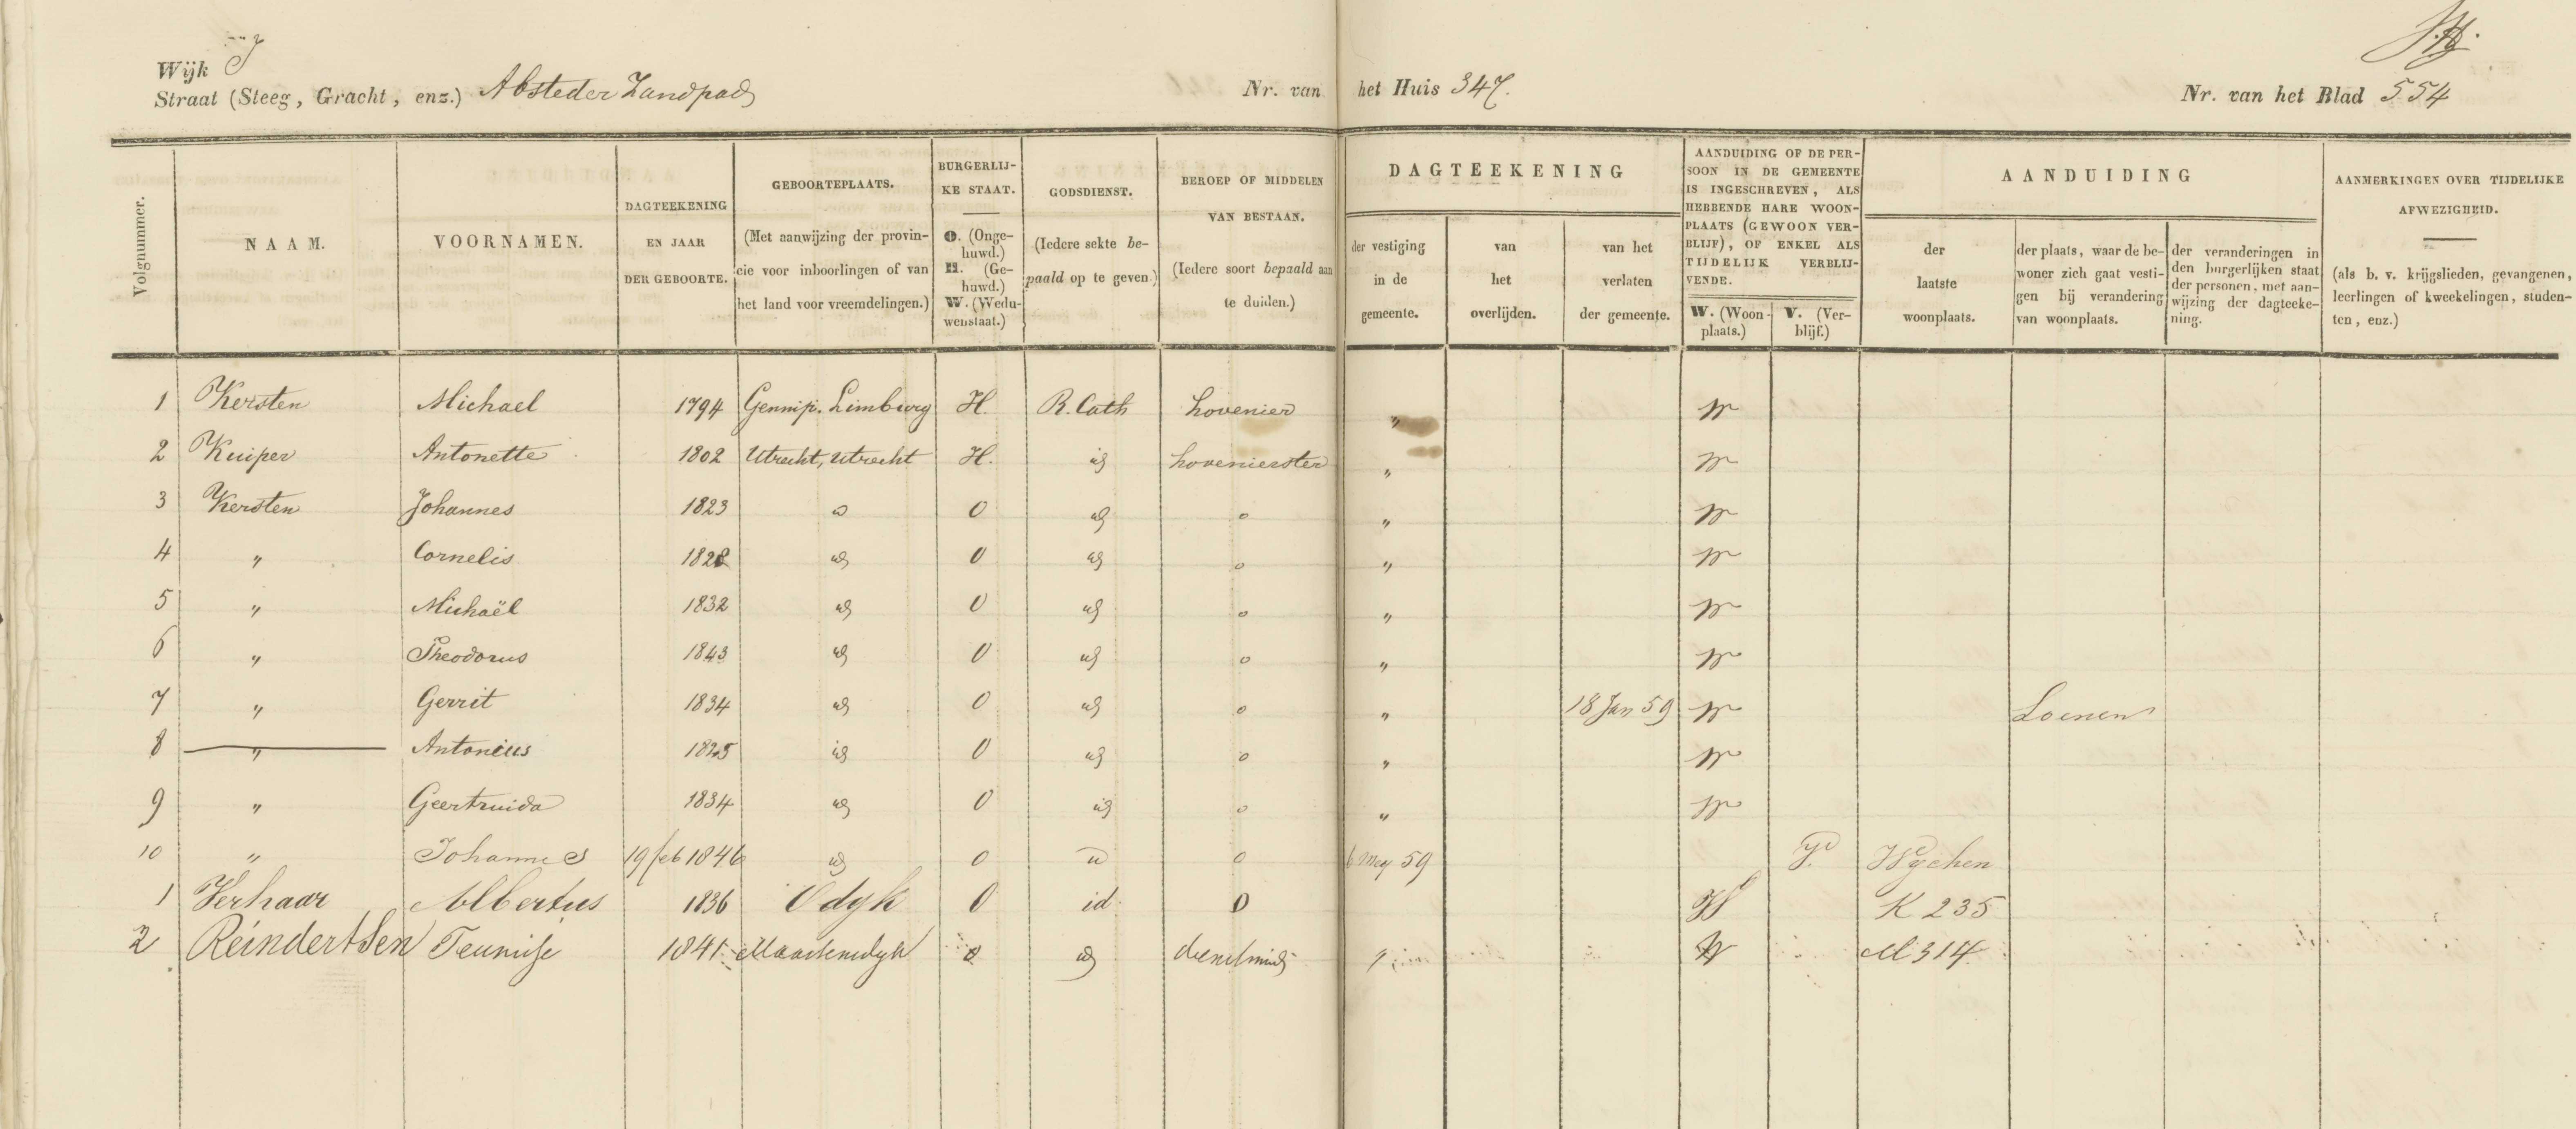 Wijk J
Straat (Steeg, Gracht, enz.) Absteder Zandpad Nr. van het Huis 347. Nr. van het Blad 554
Volgnummer.
NAAM.
VOORNAMEN.
DAGTEEKENING
EN JAAR
DER GEBOORTE.
GEBOORTEPLAATS.
(Met aanwijzing der provin-
cie voor inboorlingen of van
het land voor vreemdelingen.)
BURGERLIJ-
KE STAAT.
O. (Onge-
huwd.)
H. (Ge-
huwd.)
W. (Wedu-
wenstaat.)
GODSDIENST.
(Iedere sekte be-
paald op te geven.)
BEROEP OF MIDDELEN
VAN BESTAAN.
(Iedere soort bepaald aan
te duiden.)
DAGTEEKENING
der vestiging
in de
gemeente.
van
het
overlijden.
van het
verlaten
der gemeente.
AANDUIDING OF DE PER-
SOON IN DE GEMEENTE
IS INGESCHREVEN, ALS
HEBBENDE HARE WOON-
PLAATS (GEWOON VER-
BLIJF), OF ENKEL ALS
TIJDELIJK VERBLIJ-
VENDE.
W. (Woon-
plaats.)
V. (Ver-
blijf.)
AANDUIDING
der
laatste
woonplaats.
der plaats, waar de be-
woner zich gaat vesti-
gen bij verandering
van woonplaats.
der veranderingen in
den burgerlijken staat
der personen, met aan-
wijzing der dagteeke-
ning.
AANMERKINGEN OVER TIJDELIJKE
AFWEZIGHEID.
(als b. v. krijgslieden, gevangenen,
leerlingen of kweekelingen, studen-
ten, enz.)
1 Kersten Michael 1794 Gennip. Limburg H. R. Cath hovenier " W
2 Kuiper Antonette 1802 Utrecht, Utrecht H. id hovenierster " W
3 Kersten Johannes 1823 id O id o " W
4 " Cornelis 1828 id O id o " W
5 " Michaël 1832 id O id o " W
6 " Theodorus 1843 id O id o " W
7 " Gerrit 1834 id O id o " 18 Jan 59 W Loenen
8 " Antonius 1825 id O id o " W
9 " Geertruida 1834 id O id o " W
10 " Johannes 19 feb 1846 id O id o 6 Mey 59 V. Wychen
1 Verhaar Albertus 1836 Odyk O id O W K 235
2 Reindertsen Teunisje 1841 Maartensdyk O id dienstmeid " W M 314